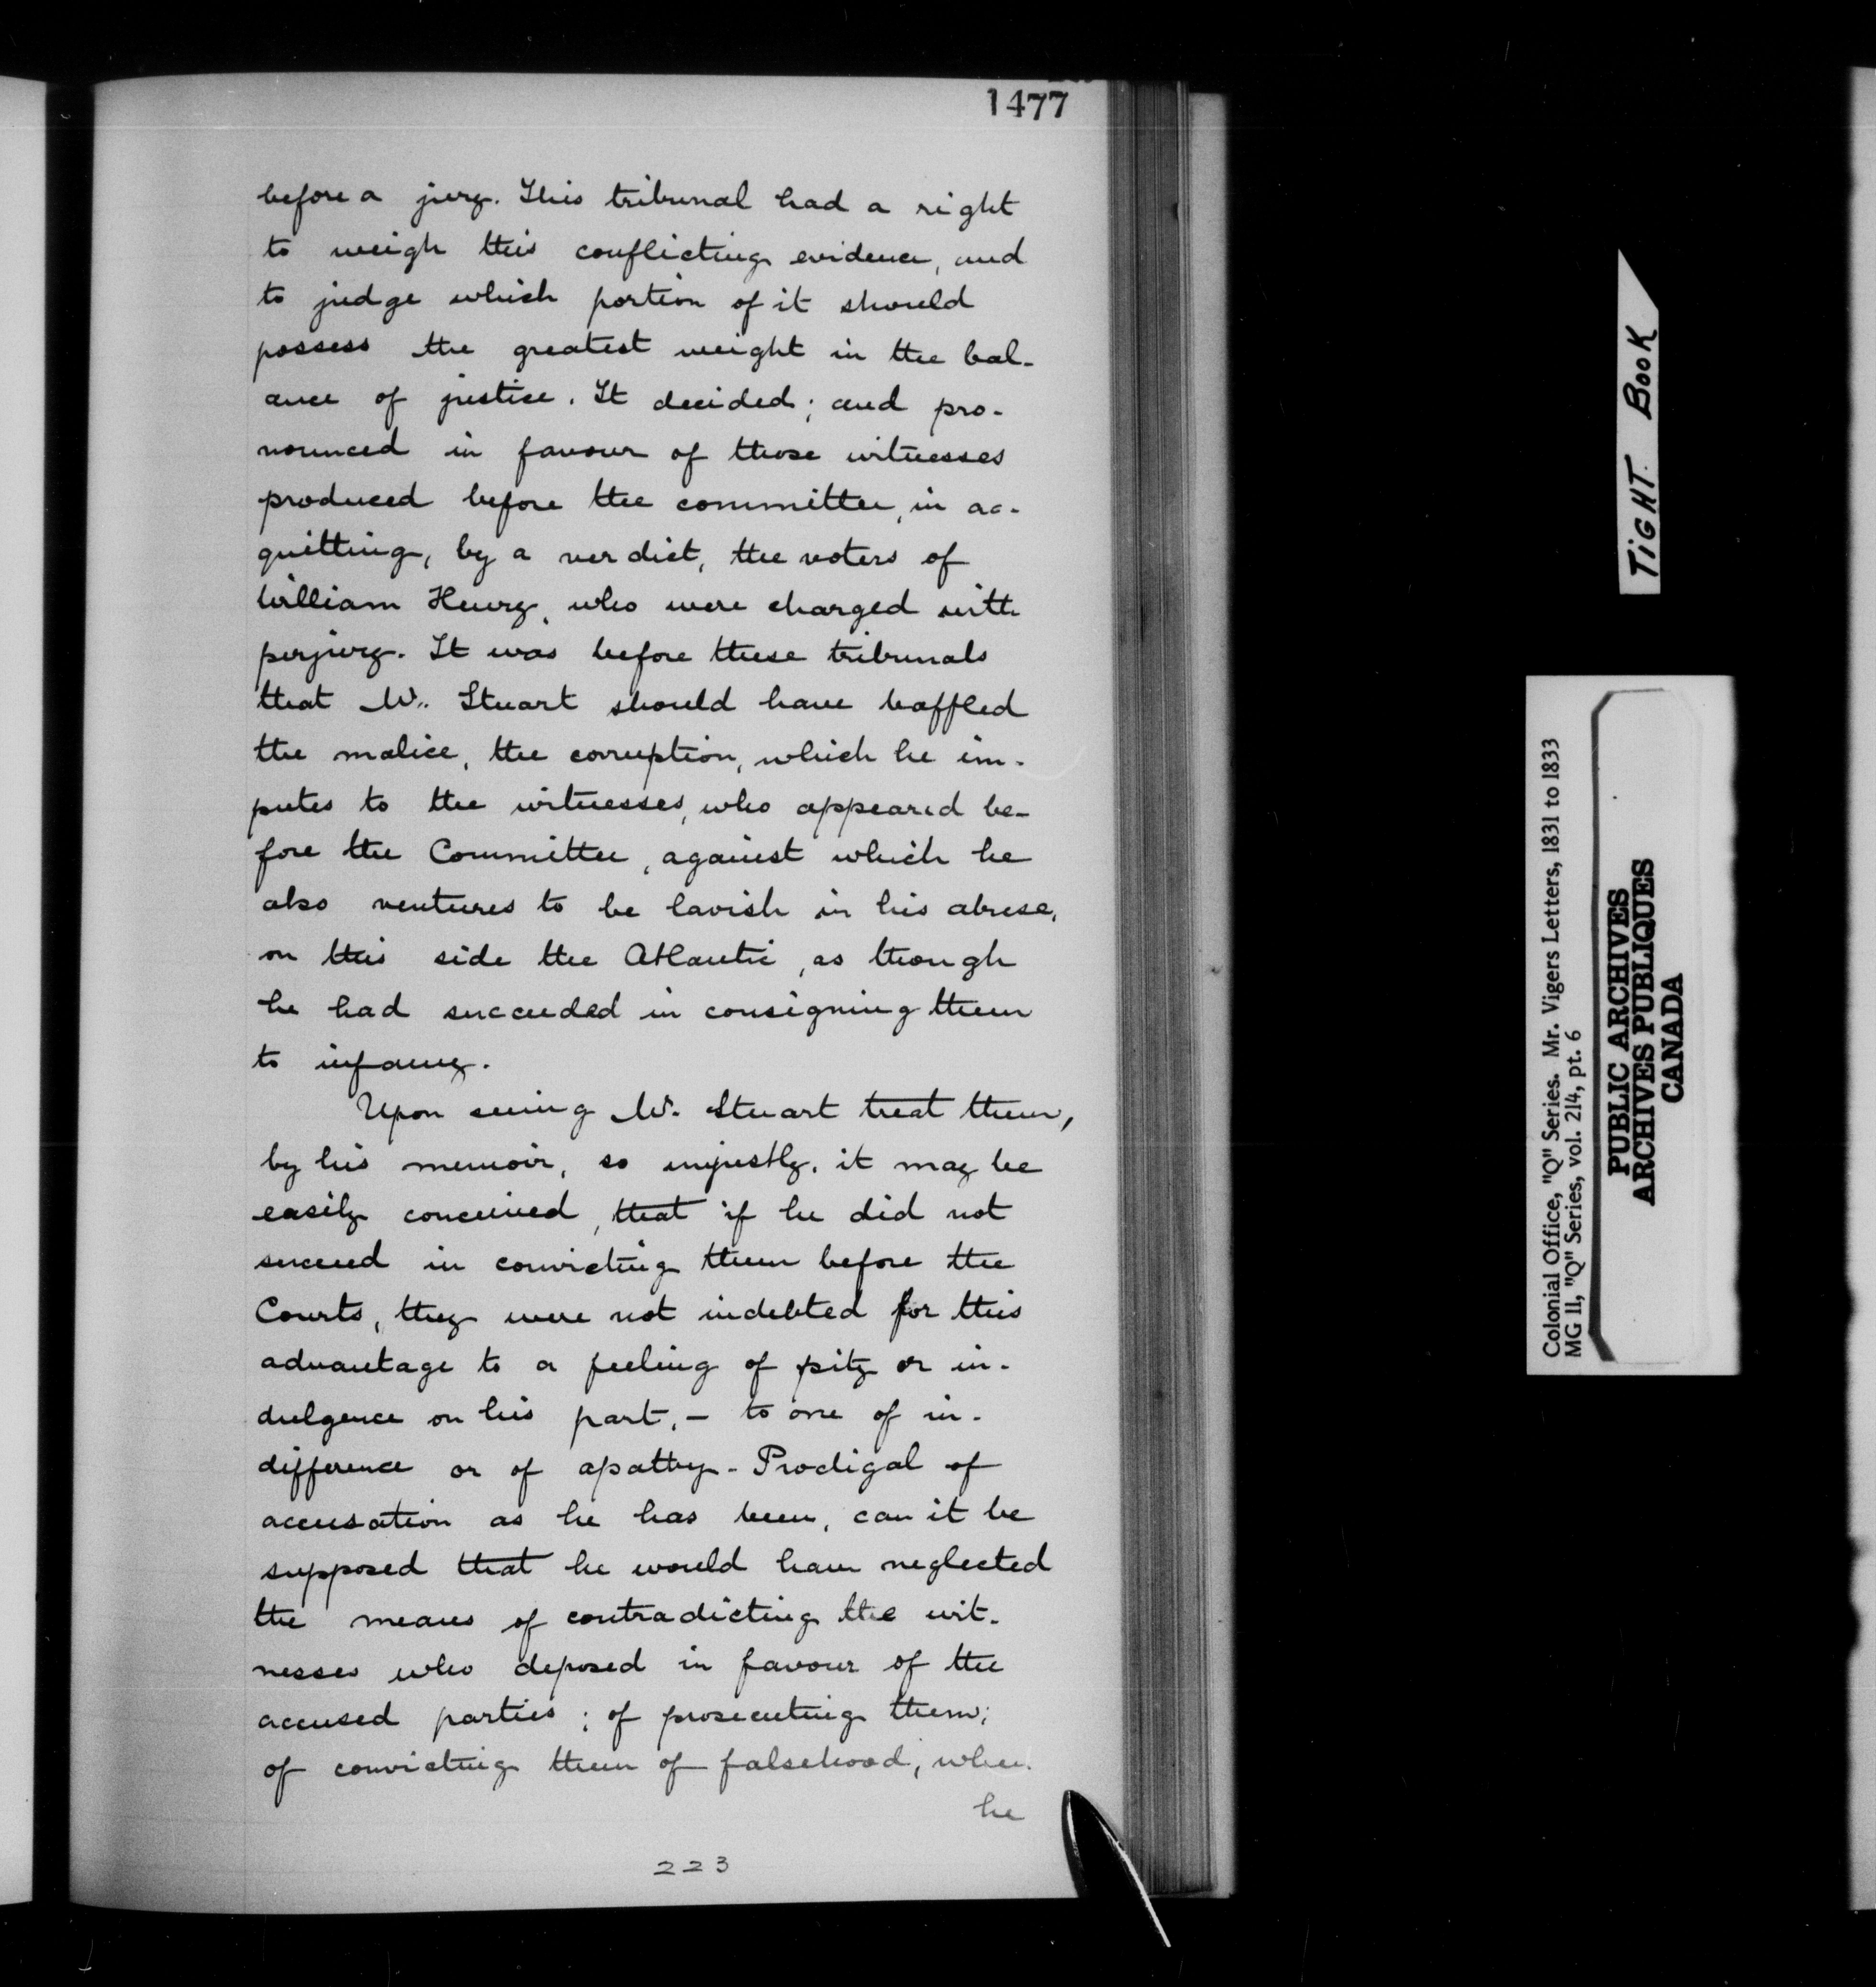 1477
before a jury. This tribunal had a right
to weigh this conflicting evidence, and
to judge which portion of it should
possess the greatest weight in the bal-
ance of justice. It decided; and pro-
nounced in favour of those witnesses
produced before the committee, in ac-
quitting, by a verdict, the voters of
William Henry, who were charged with
perjury. It was before these tribunals
that Mr. Stuart should have baffled
the malice, the corruption, which he im-
putes to the witnesses, who appeared be-
fore the Committee, against which he
also ventures to be lavish in his abuse,
on this side the Atlantic, as though
he had succeeded in consigning them
to infamy.
Upon seeing Mr. Stuart treat them,
by his memoir, so unjustly, it may be
easily conceived, that if he did not
succeed in convicting them before the
Courts, they were not indebted for this
advantage to a feeling of pity or in-
dulgence on his part, - to one of in-
difference or of apathy - Prodigal of
accusation as he has been, can it be
supposed that he would have neglected
the means of contradicting the wit-
nesses who deposed in favour of the
accused parties; of prosecuting them;
of convicting them of falsehood, when
he
223
TIGHT BOOK
Colonial Office, "Q" Series. Mr. Vigers Letters, 1831 to 1833
MG 11, "Q" Series, vol. 214, pt. 6
PUBLIC ARCHIVES
ARCHIVES PUBLIQUES
CANADA